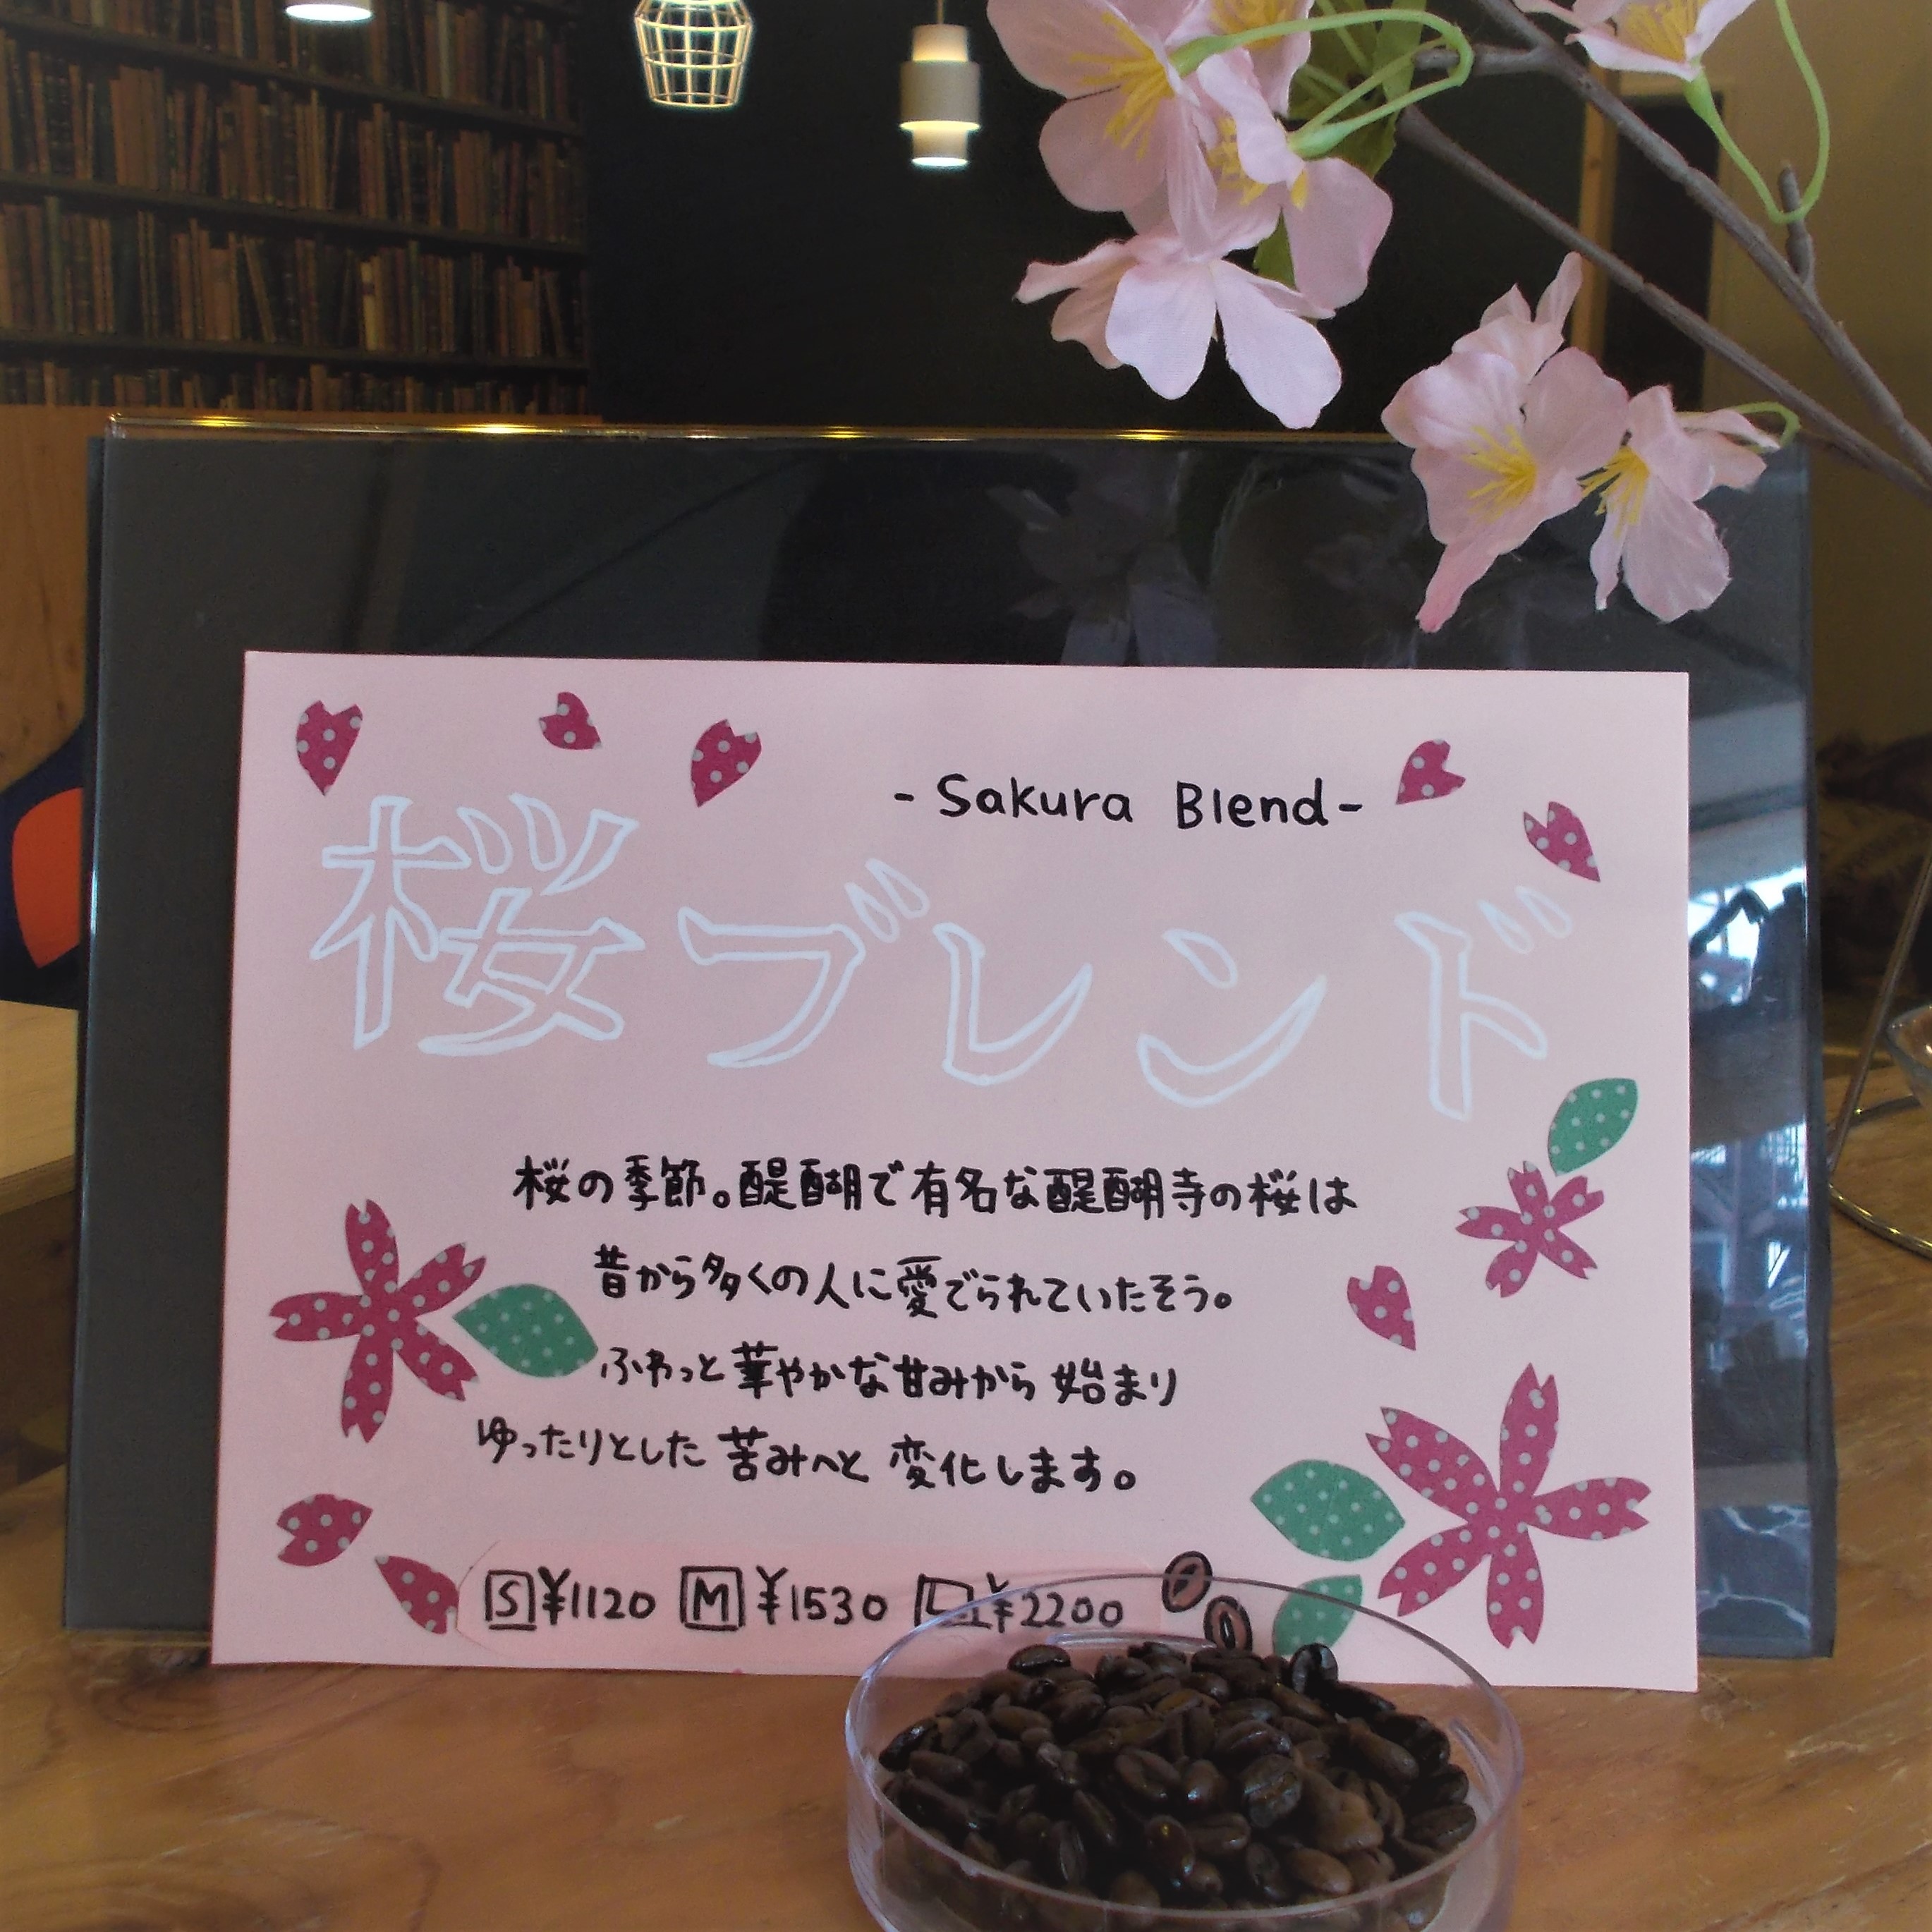 - Sakura Blend -
桜ブレンド
桜の季節。醍醐で有名な醍醐寺の桜は
昔から多くの人に愛でられていたそう。
ふわっと華やかな甘みから始まり
ゆったりとした苦みへと変化します。
S ¥1120 M ¥1530 L ¥2200